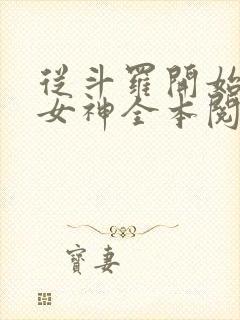 從斗羅開始
女神全本閱
寶妻